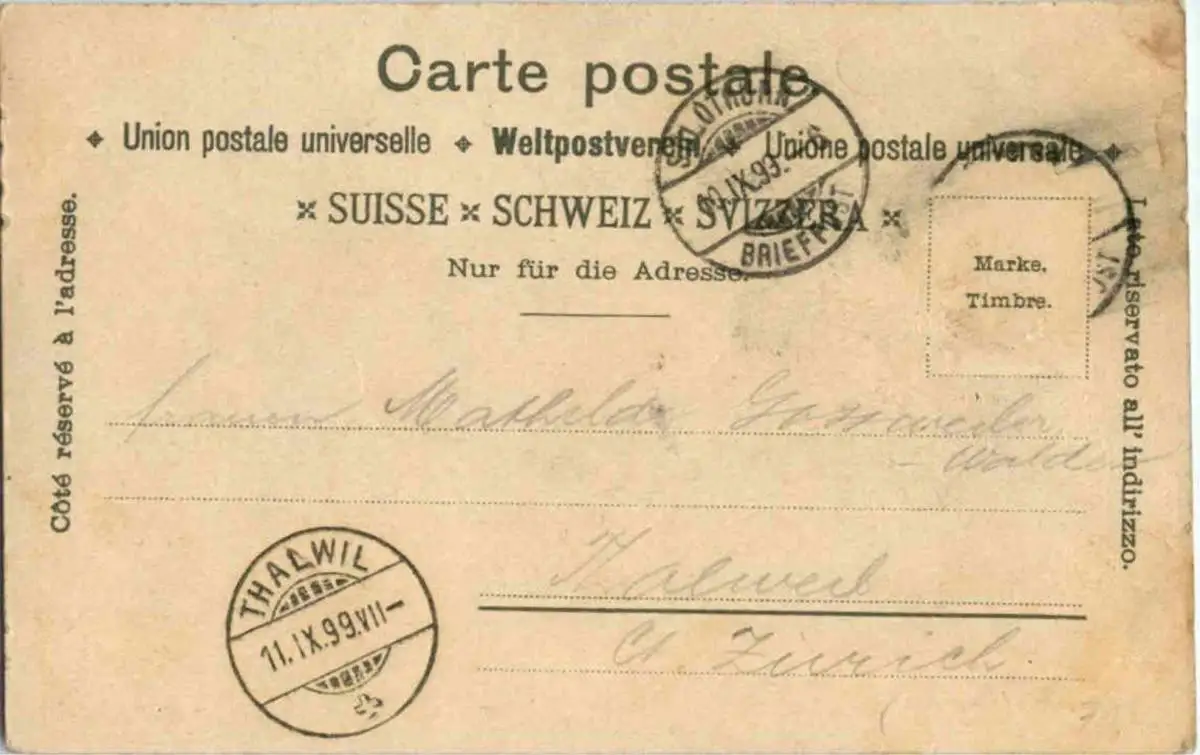 Carte postale
Union postale universelle Weltpostverein Unione postale universale
SUISSE SCHWEIZ SVIZZERA
Nur für die Adresse.
Côté réservé à l'adresse.
Lato riservato all' indirizzo.
Marke.
Timbre.
SOLOTHURN
IX.99.
BRIEF
Mathilde
Walder
Thalweil
Ct. Zürich
THALWIL
11.IX.99.VII-